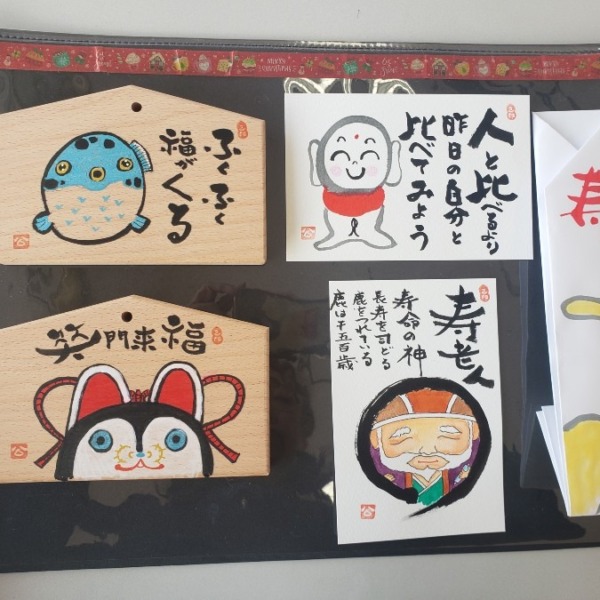 ふくふく
福がくる
笑門来福
人と比べるより
昨日の自分と
比べてみよう
寿老人
寿命の神
長寿を司どる
鹿をつれている
鹿は千五百歳